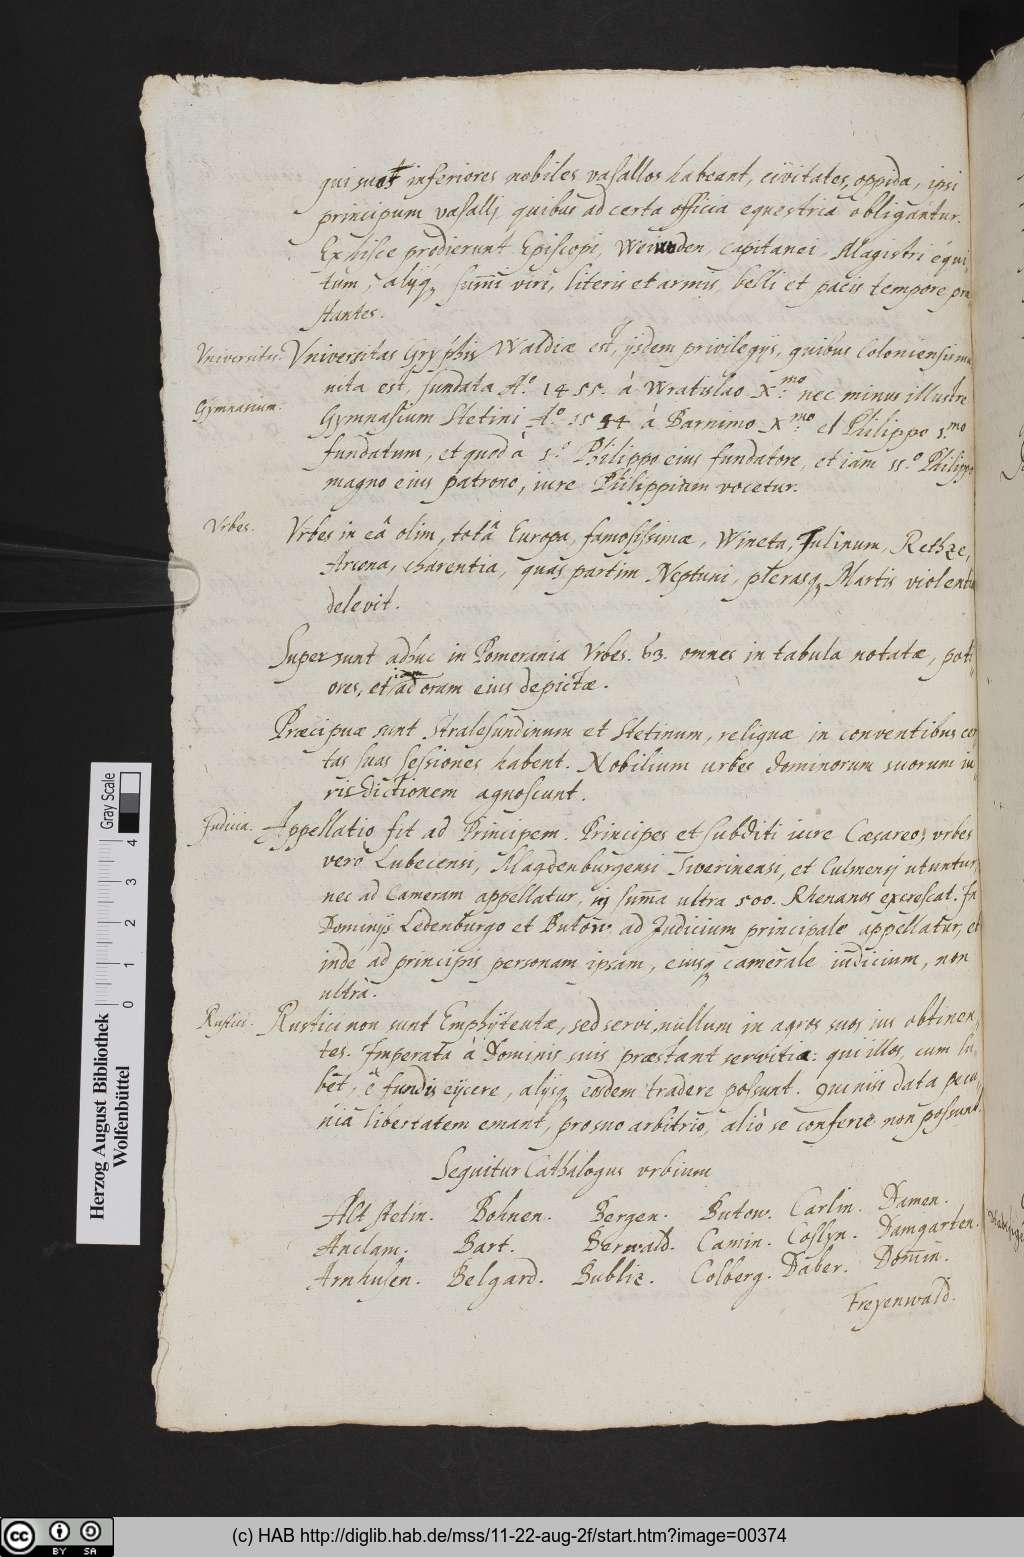 qui suos inferiores nobiles vasallos habeant, civitates, oppida, ipsi
principum vasalli, quibus ad certa officia equestria obligantur.
Ex hisce prodierunt Episcopi, capitanei, Magistri equi„
tum, aliÿq₃ sum̄i viri, literis et armis, belli et pacis tempore præ„
stantes.
Vniversitas. Vniversitas Gryphis Waldiæ est, ÿsdem privilegÿs, quibus Coloniensis mu„
nita est, fundata A.º 1455. à Wratislao X.mo nec minus illustre
Gymnasium. Gymnasium Stetini A.º 1544 à Barnimo X.mo et Philippo 1.mo
fundatum, et quod à 1.º Philippo eius fundatore, et iam 11.º Philippo
magno eius patrono, iure Philippium vocetur.
Vrbes. Vrbes in eâ olim, totâ Europa, famosissimæ, Wineta, Julinum, Rethze,
Arcona, Charentia, quas partim Neptuni, plerasq₃ Martis violentia
delevit.
Supersunt adhuc in Pomerania Vrbes. 63. omnes in tabula notatæ, poti„
ores, etiam ad oram eius depictæ.
Præcipuæ sunt Stralesundinum et Stetinum, reliquæ in conventibus cer„
tas suas sessiones habent. Nobilium urbes dominorum suorum iu„
risdictionem agnoscunt.
Judicia. Appellatio fit ad Principem. Principes et subditi iure Cæsareo, vrbes
verò Lubecensi, Magdenburgensi Swerinensi, et Culmensi utuntur,
nec ad Cameram appellatur, nj sum̄a ultra 500. Rhenanos excrescat. In
Dominÿs Ledenburgo et Butow ad Judicium principale appellatur, et
inde ad principis personam ipsam, eiusq₃ camerale iudicium, non
ultrà.
Rustici. Rustici non sunt Emphÿteutæ, sed servi, nullum in agros suos ius obtinen„
tes. Imperata à Dominis suis præstant servitia: qui illos, cum lu„
bet, è fundis eÿcere, alÿsq₃ eosdem tradere possunt. Qui nisi data pecu„
nia libertatem emant, pro suo arbitrio, aliò se conferre non possunt.
Sequitur Cathalogus vrbium
Alt stetin. Bohnen. Bergen. Butow. Carlin. Damen.
Anclam. Bart. Berwald. Camin. Coslyn. Damgarten.
Arnhusen. Belgard. Bublie. Colberg. Daber. Dom̄in.
Freyenwald.
Gray Scale
4 3 2 1 0
Herzog August Bibliothek
Wolfenbüttel
cc BY SA
(c) HAB http://diglib.hab.de/mss/11-22-aug-2f/start.htm?image=00374